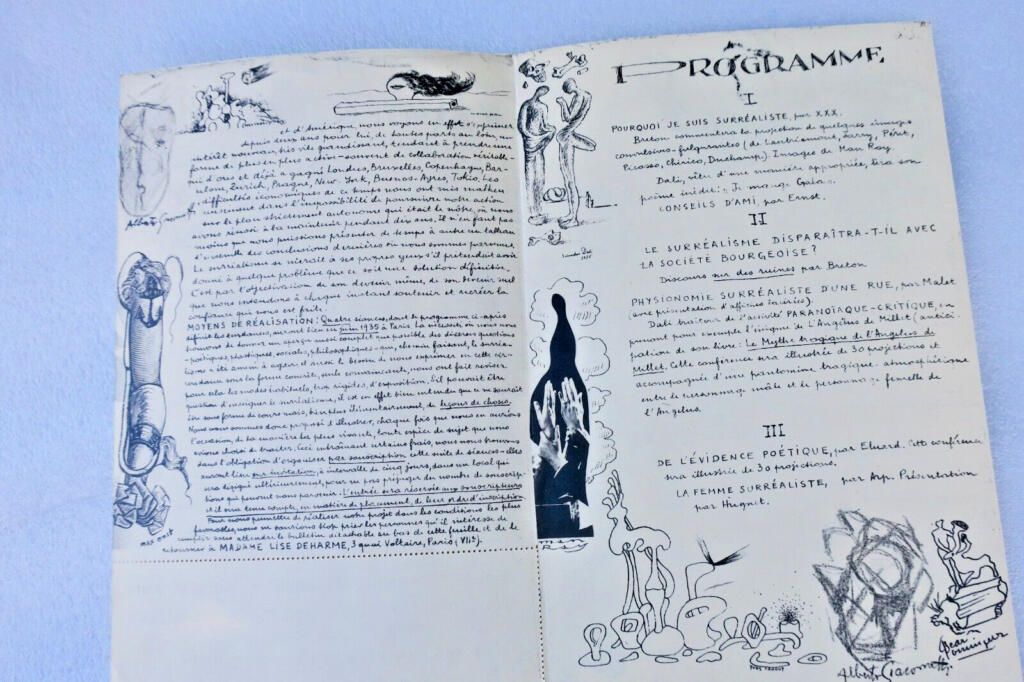 Alberto Giacometti
et d'Amérique, nous voyons en effet s'exprimer
depuis deux ans pour lui, de toutes parts au loin, un
intérêt nouveau, qui va très vite grandissant, tendant à prendre une
forme de plus en plus active – souvent de collaboration véritable –
qui d'ores et déjà a gagné Londres, Bruxelles, Copenhague, Bar-
celone, Zurich, Prague, New-York, Buenos-Ayres, Tokio. Les
difficultés économiques de ce temps nous ont mis malheu-
reusement dans l'impossibilité de poursuivre notre action
sur le plan strictement autonome qui était le nôtre, où nous
avons réussi à la maintenir pendant dix ans, il n'en faut pas
moins que nous puissions présenter de temps à autre un tableau
d'ensemble des conclusions dernières où nous sommes parvenus.
Le surréalisme se nierait à ses propres yeux s'il prétendait avoir
donné à quelque problème que ce soit une solution définitive.
C'est par l'objectivation de son devenir même, de son devenir seul
que nous entendons à chaque instant soutenir et recréer la
confiance qui nous est faite.
MOYENS DE RÉALISATION : Quatre séances, dont le programme ci-après
définit les tendances, auront lieu en juin 1935 à Paris. La nécessité où nous nous
trouvons de donner un aperçu aussi complet que possible des diverses questions
– poétiques, plastiques, sociales, philosophiques – que, chemin faisant, le surréa-
lisme a été amené à agiter, d'aussi le besoin de nous exprimer en cette cir-
constance sous la forme concrète, seule convaincante, nous ont fait reviser
pour cela les modes habituels, trop rigides, d'exposition. S'il pouvait être
question d'enseigner le surréalisme, il est en effet bien entendu que ce ne saurait
être sous forme de cours mais, bien plus élémentairement, de leçons de choses.
Nous nous sommes donc proposé d'illustrer, chaque fois que nous en aurions
l'occasion, de la manière la plus vivante, toute espèce de sujet que nous
avions choisi de traiter. Ceci entraînant certains frais, nous nous trouvons
dans l'obligation d'organiser par souscription cette suite de séances – elles
auront lieu sur invitation, à intervalle de cinq jours, dans un local qui
sera désigné ultérieurement, pour ne pas préjuger du nombre de souscrip-
tions qui peuvent nous parvenir. L'entrée sera réservée aux souscripteurs
et il sera tenu compte, en matière de placement, de leur ordre d'inscription
Pour nous permettre de réaliser notre projet dans les conditions les plus
favorables, nous ne saurions trop prier les personnes qu'il intéresse de
remplir sans attendre le bulletin détachable au bas de cette feuille et de le
retourner à MADAME LISE DEHARME, 3 quai Voltaire, Paris (VIIe).
PROGRAMME
I
POURQUOI JE SUIS SURRÉALISTE, par XXX.
Breton commentera la projection de quelques images
comestibles-fulgurantes (de Lautréamont, Jarry, Péret,
Picasso, Chirico, Duchamp). Images de Man Ray.
Dali, vêtu d'une manière appropriée, lira son
poème inédit : "Je mange Gala".
CONSEILS D'AMI, par Ernst.
II
LE SURRÉALISME DISPARAÎTRA-T-IL AVEC
LA SOCIÉTÉ BOURGEOISE ?
Discours sur des ruines par Breton
PHYSIONOMIE SURRÉALISTE D'UNE RUE, par Malet
(avec présentation d'affiches lacérées).
Dali traitera de l'activité PARANOÏAQUE-CRITIQUE, en
prenant pour exemple l'énigme de l'Angélus de Millet (antici-
pation de son livre : Le Mythe tragique de l'Angélus de
Millet. Cette conférence sera illustrée de 30 projections et
accompagnée d'une pantomime tragique-atmosphérique
entre le personnage mâle et le personnage femelle de
l'Angélus.
III
DE L'ÉVIDENCE POÉTIQUE, par Eluard. Cette conférence
sera illustrée de 30 projections.
LA FEMME SURRÉALISTE, par Arp. Présentation
par Hugnet.
YVES TANGUY
Alberto Giacometti
Oscar Dominguez